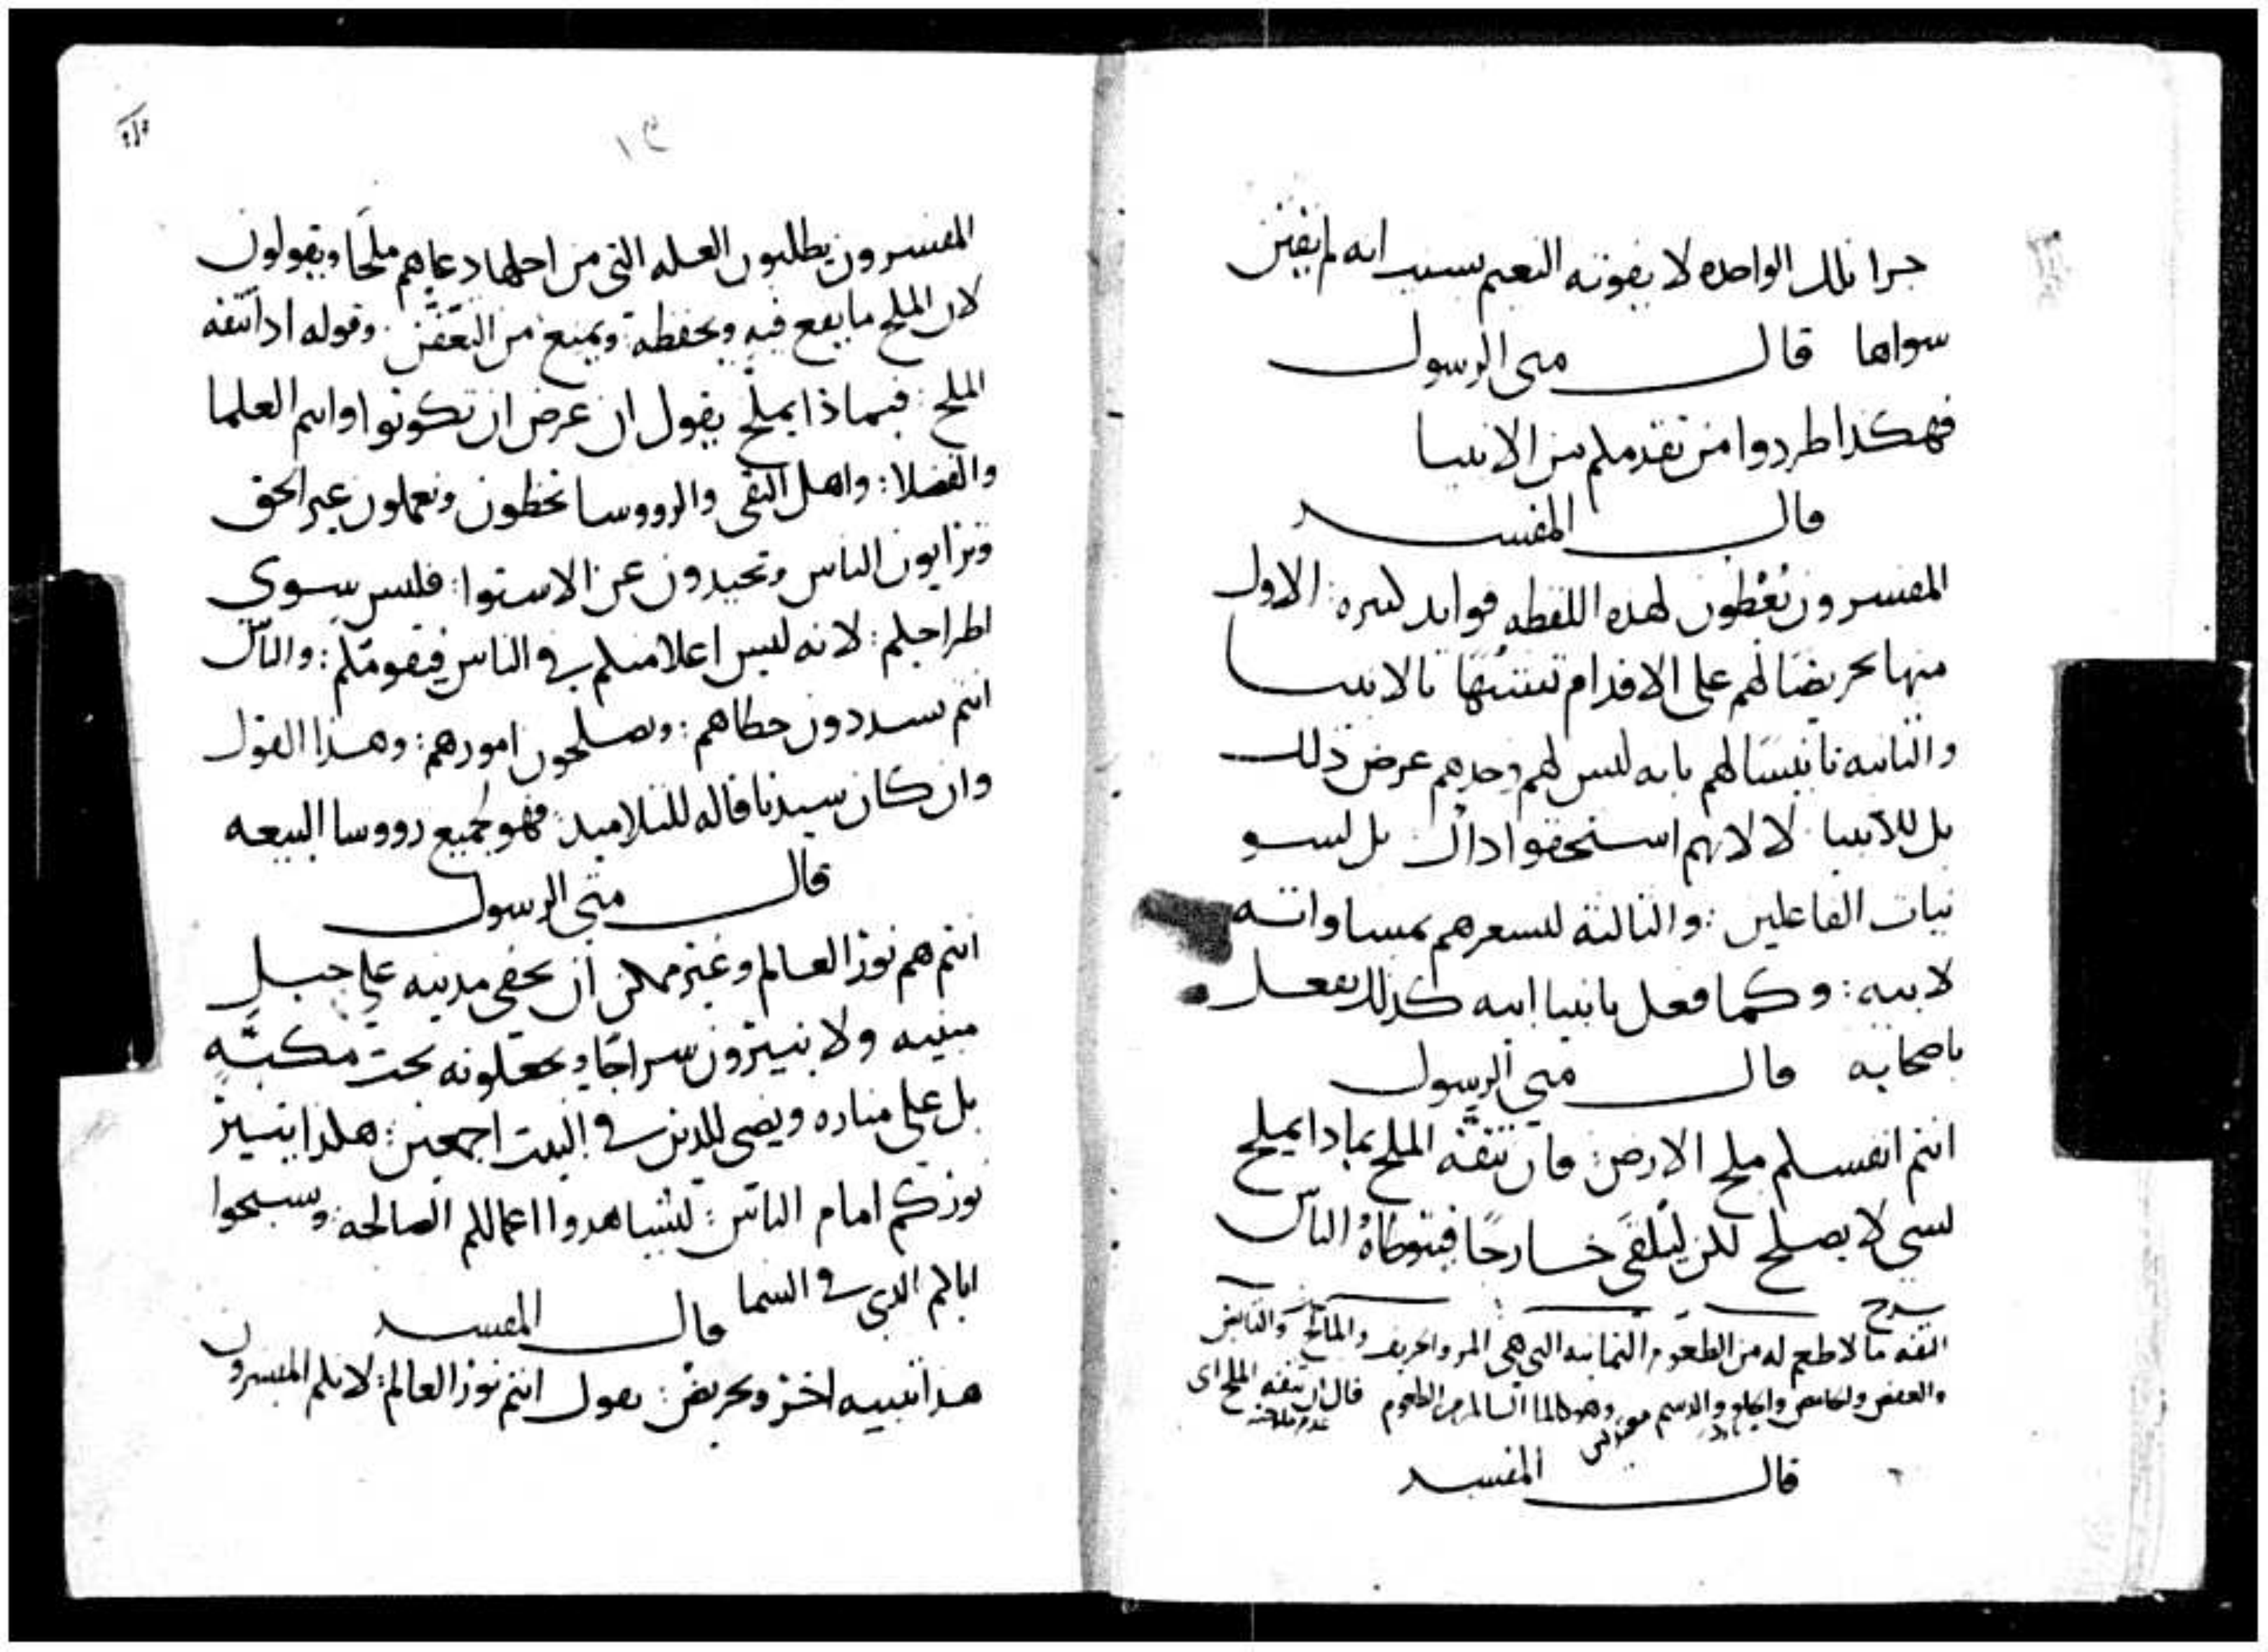 جزا تلك الواحده لا يفوته النعيم بسبب انه لم يقتن
سواها قال متى الرسول
فهكذا طردوا من تقدمكم من الانبيا
قال المفسر
المفسرون يعطون لهذه اللفظه فوايد كثيره: الاول
منها تحريضا لهم على الاقدام تشبها بالانبيا
والثانيه تانيسا لهم بانه ليس لهم وحدهم عرض ذلك
بل للانبيا لا لانهم استحقوا ذاك بل لسو
نيات الفاعلين: والثالثة ليشعرهم بمساواته
لابيه: وكما فعل بانبيا ابيه كذلك يفعل
باصحابه قال متى الرسول
انتم انفسكم ملح الارض: فان تتفه الملح بماذا يملح
لشي لا يصلح لكن ليلقى خارجا فيتوطاه الناس
شرح
التفه ما لا طعم له من الطعوم الثمانيه التي هي المر والحريف والمالح والقابض
والعفص والحامض والحلو والدسم وهو كالماء السالم من الطعوم قال ان تتفه الملح اى
عدم ملاحته
قال المفسر
١٣
المفسرون يطلبون العله التي من اجلها دعاهم ملحا ويقولون
لان الملح ما يقع فيه ويحفظه ويمنع من التعفن: وقوله اذا تتفه
الملح: فبماذا يملح يقول ان عرض ان تكونوا وانتم العلما
والفضلا: واهل التقى والرووسا تخطون وتعملون غير الحق
وترايون الناس وتحيدون عن الاستوا: فليس سوى
اطراحكم: لانه ليس اعلا منكم في الناس فيقومكم: والناس
انتم تسددون خطاهم: وتصلحون امورهم: وهذا القول
وان كان سيدنا قاله للتلاميذ: فهو لجميع رووسا البيعه
قال متى الرسول
انتم هم نور العالم وغير ممكن ان يخفى مدينه على جبل
مبنيه ولا ينيرون سراجا ويجعلونه تحت مكبه
بل على مناره ويضي للذين في البيت اجمعين: هكذا ينير
نوركم امام الناس: ليشاهدوا اعمالكم الصالحه: وسبحوا
اباكم الذي في السما قال المفسر
هذا تنبيه اخر وتحريض: يقول انتم نور العالم: لانكم المفسرون